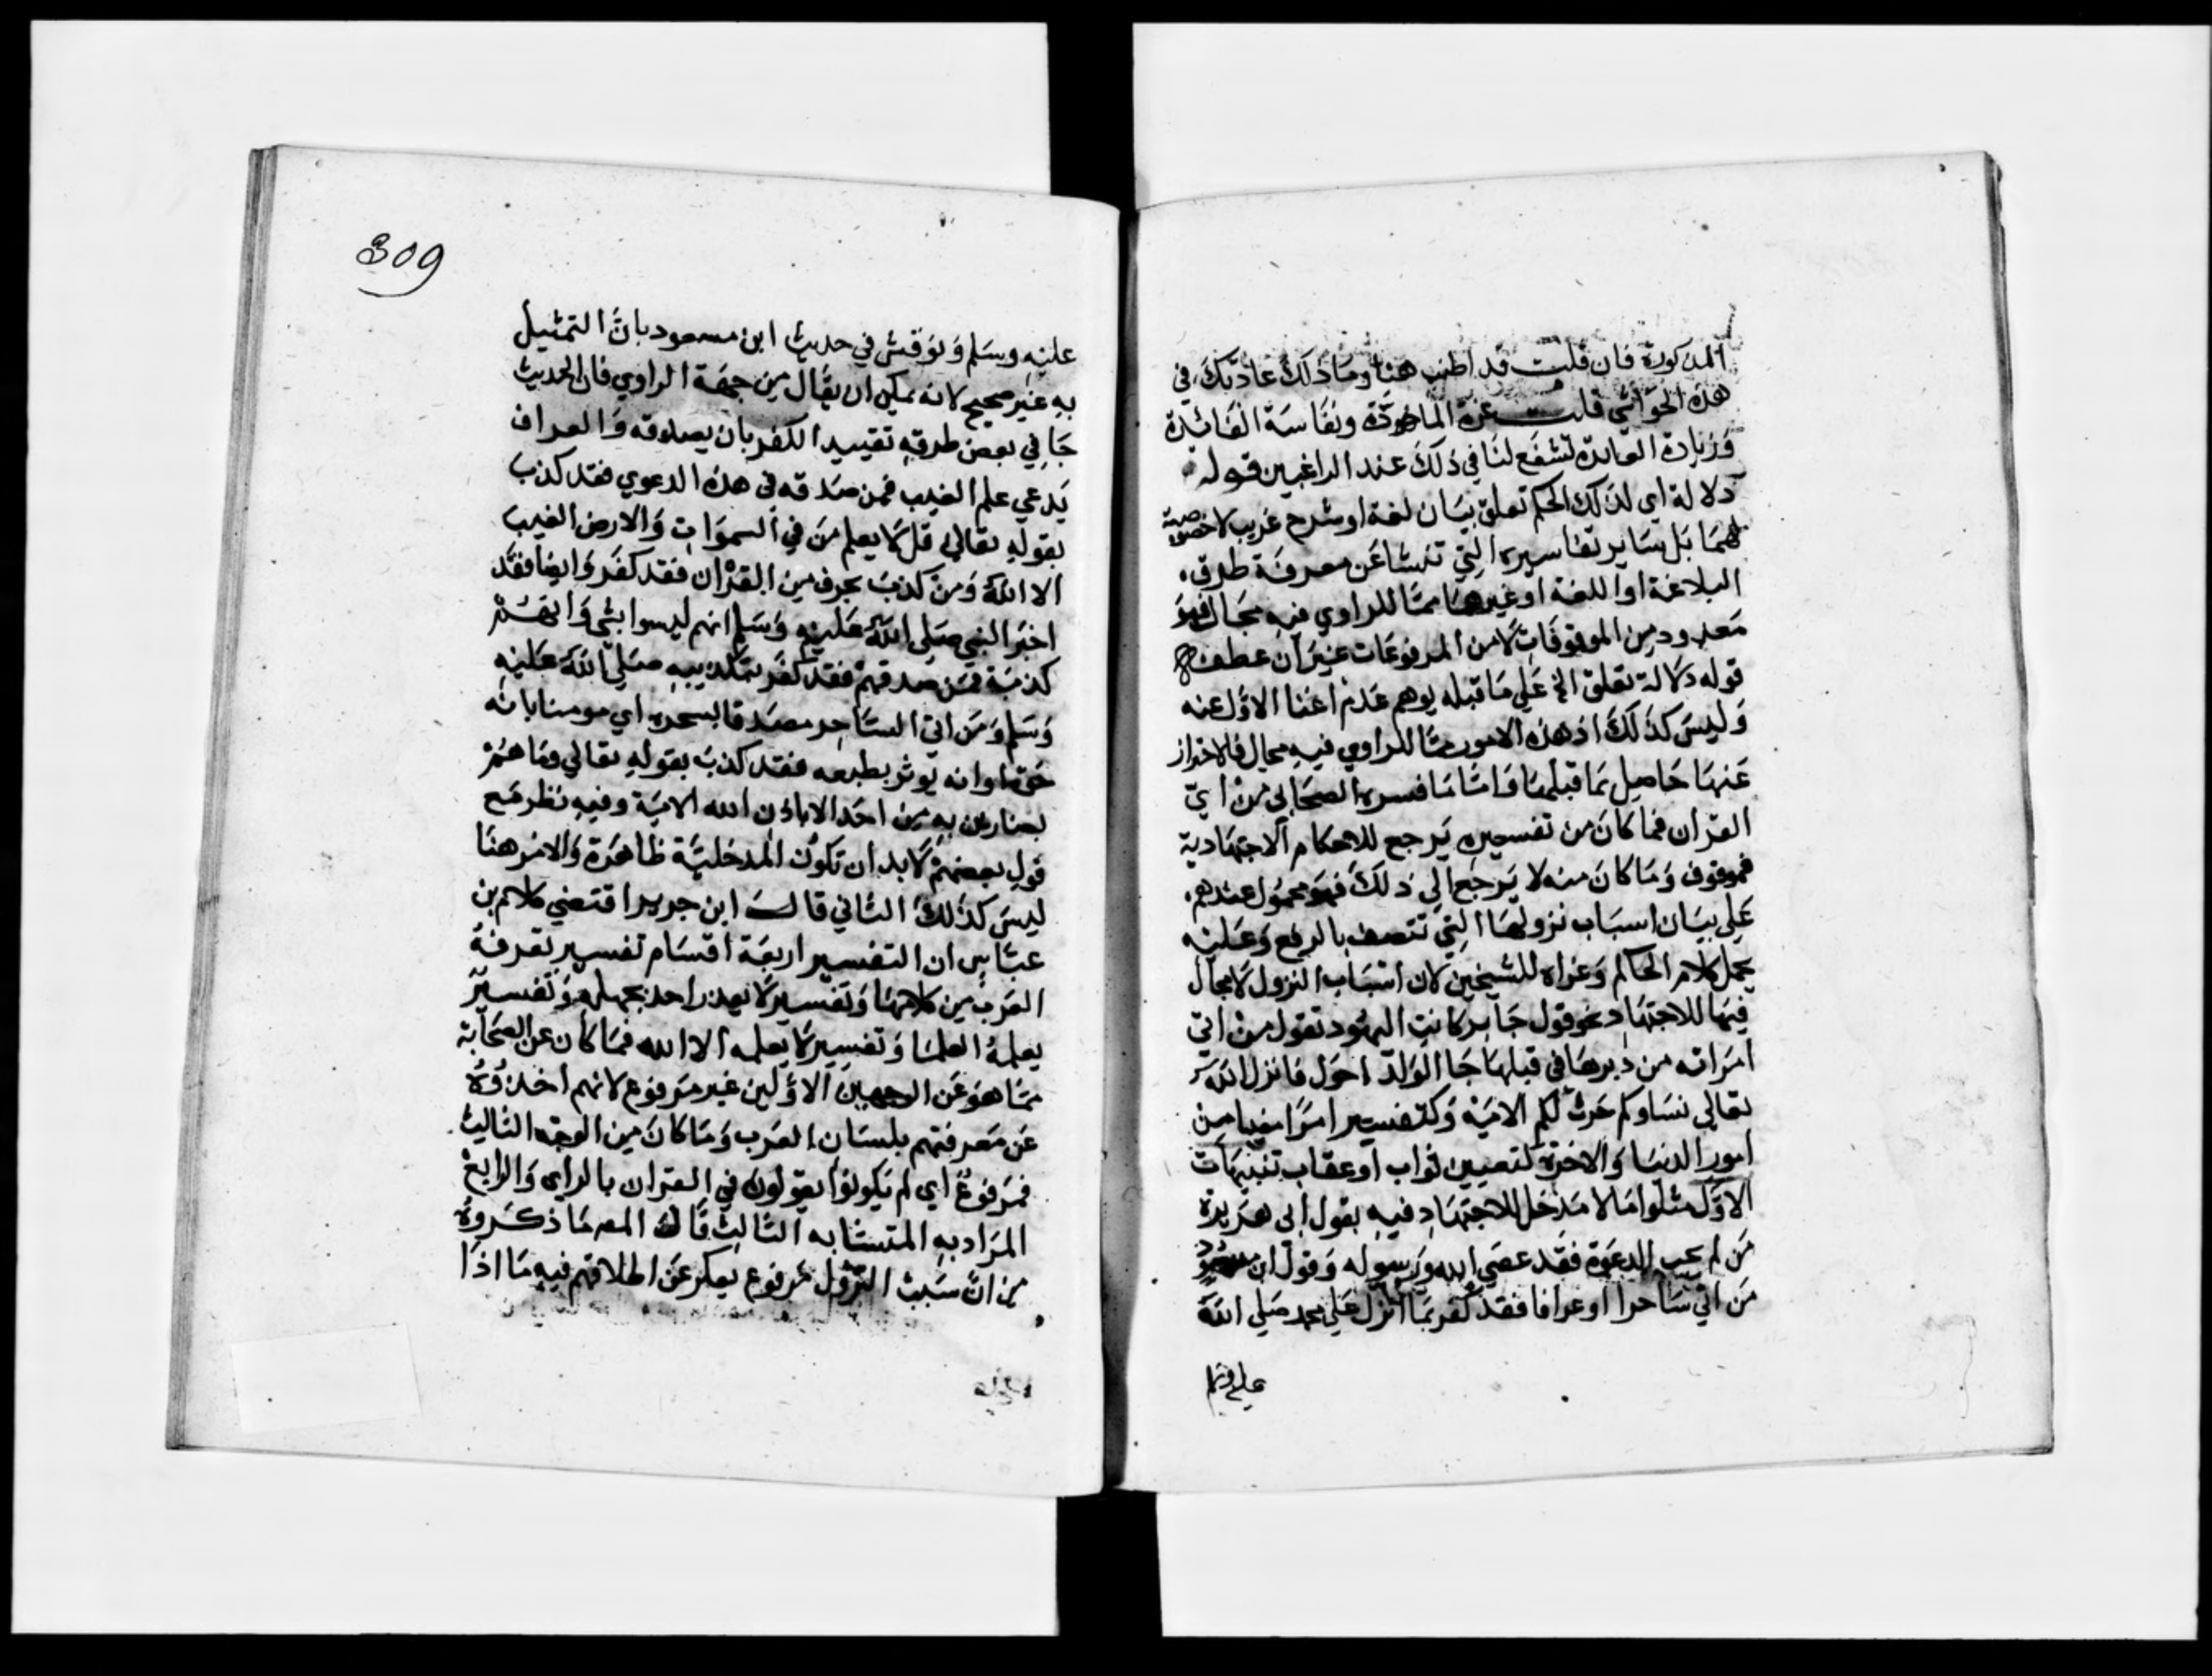 المذكورة فان قلت قد اطنب هنا وما ذلك عادتك في
هذه الحواشي قلت عزة المادة ونفاسة الفائدة
وزيادة العائدة تشفع لنا في ذلك عند الراغبين قوله
دلالة اي لذلك الحكم تعلق ببيان لغة او شرح غريب لا خصوصية
لهما بل سائر تفاسيره التي تنشا عن معرفة طرق
البلاغة او اللغة او غيرهما مما للراوي فيه مجال فهو
معدود من الموقوفات لا من المرفوعات غير ان عطف
قوله دلالة تعلق الخ علي ما قبله يوهم عدم اغنا الاول عنه
وليس كذلك اذ هذه الامور مما للراوي فيه مجال فالاحتراز
عنها حاصل بما قبلها واما ما فسره الصحابي من اي
القران فما كان من تفسيره يرجع للاحكام الاجتهادية
فموقوف وما كان منه لا يرجع الي ذلك فهو محمول عندهم
علي بيان اسباب نزولها التي تتصف بالرفع وعليه
يحمل كلام الحاكم وعزاه للشيخين لان اسباب النزول لا مجال
فيها للاجتهاد نحو قول جابر كانت اليهود تقول من اتي
امراته من دبرها في قبلها جا الولد احول فانزل الله
تعالي نساوكم حرث لكم الاية وكتفسير امرا مغيبا من
امور الدنيا والاخرة كتعيين ثواب او عقاب تنبيهات
الاول مثلوا ما لا مدخل للاجتهاد فيه بقول ابي هريرة
من لم يجب الدعوة فقد عصي الله ورسوله وقول ابن مسعود
من اتي ساحرا او عرافا فقد كفر بما انزل علي محمد صلي الله
عليه وسلم
309
عليه وسلم ونوقش في حديث ابن مسعود بان التمثيل
به غير صحيح لانه يمكن ان يقال من جهة الراوي فان الحديث
جا في بعض طرقه تقييد الكفر بان يصدقه والعراف
يدعي علم الغيب فمن صدقه في هذه الدعوي فقد كذب
بقوله تعالي قل لا يعلم من في السموات والارض الغيب
الا الله ومن كذب بحرف من القران فقد كفر وايضا فقد
اخبر النبي صلي الله عليه وسلم انهم ليسوا بشي وانهم
كذبة فمن صدقهم فقد كفر بتكذيبه صلي الله عليه
وسلم ومن اتي الساحر مصدقا بسحره اي مومنا بانه
حق او انه يوثر بطبعه فقد كذب بقوله تعالي وما هم
بضارين به من احد الا باذن الله الاية وفيه نظر مع
قول بعضهم لابد ان تكون المدخلية ظاهرة والامر هنا
ليس كذلك الثاني قال ابن جرير اقتضي كلام بن
عباس ان التفسير اربعة اقسام تفسير تعرفه
العرب من كلامها وتفسير لا يعذر احد بجهله وتفسير
يعلمه العلما وتفسير لا يعلمه الا الله فما كان عن الصحابة
مما هو عن الوجهين الاولين غير مرفوع لانهم اخذوه
عن معرفتهم بلسان العرب وما كان من الوجه الثالث
فمرفوع اي لم يكونوا يقولون في القران بالراي والرابع
المراد به المتشابه الثالث قال المص ما ذكروه
من ان سبب النزول مرفوع يعكر عن اطلاقهم فيه ما اذا